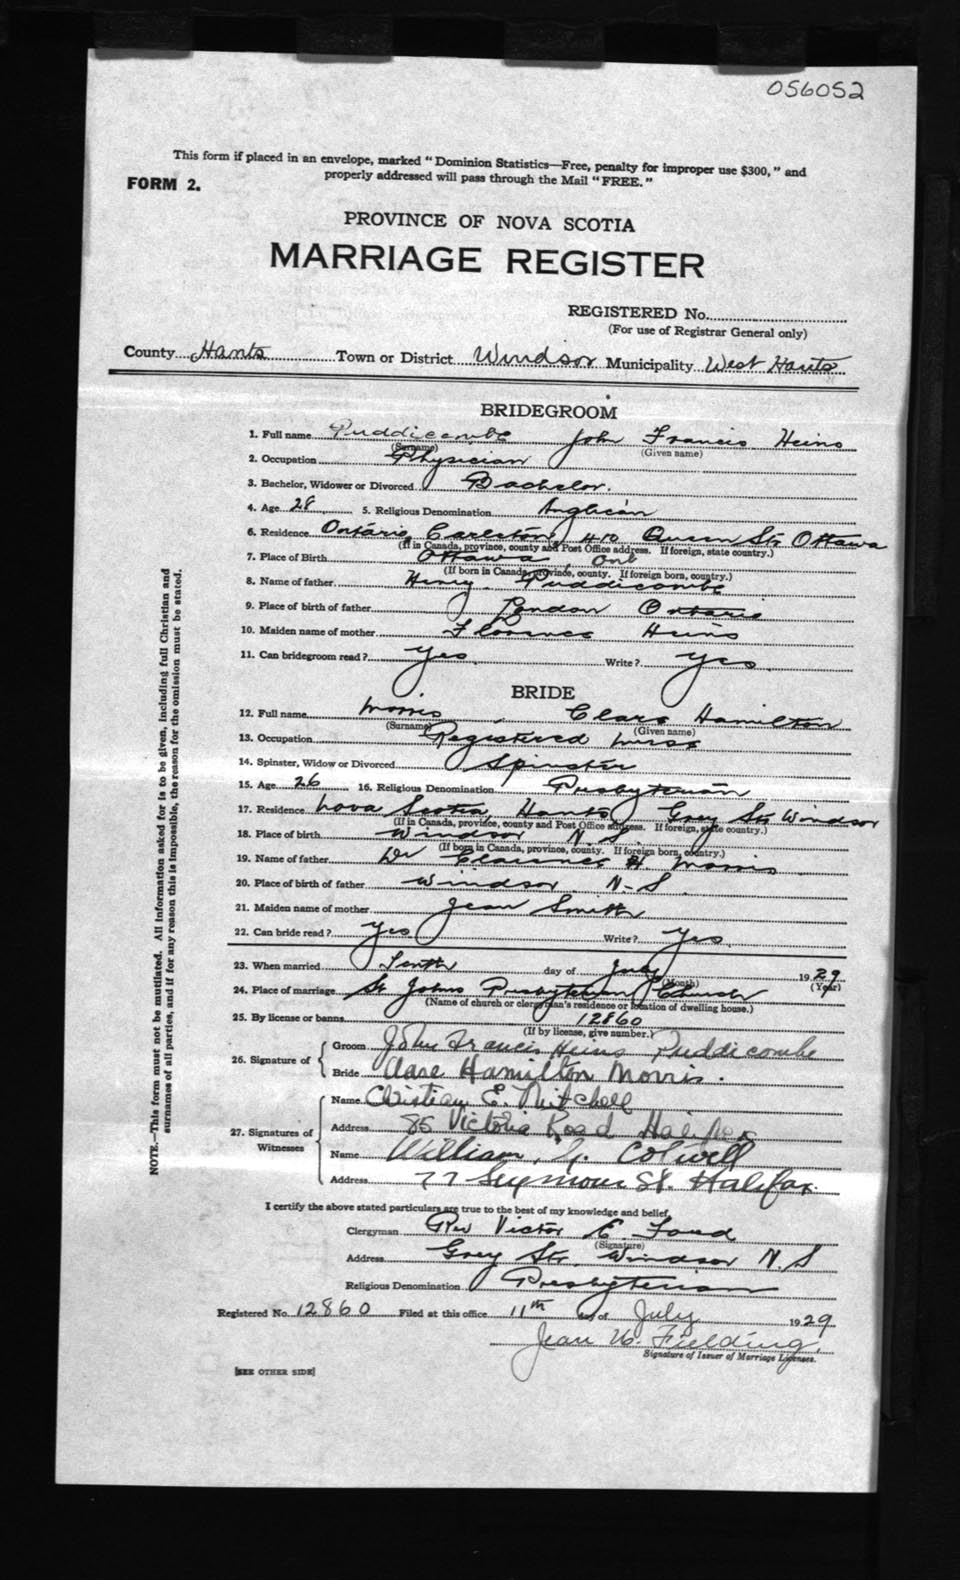 056052
This form if placed in an envelope, marked "Dominion Statistics—Free, penalty for improper use $300," and
FORM 2. properly addressed will pass through the Mail "FREE."
PROVINCE OF NOVA SCOTIA
MARRIAGE REGISTER
REGISTERED No.
(For use of Registrar General only)
County Hants Town or District Windsor Municipality West Hants
BRIDEGROOM
1. Full name Puddicombe John Francis Heins
(Surname) (Given name)
2. Occupation Physician
3. Bachelor, Widower or Divorced Bachelor.
4. Age 28 5. Religious Denomination Anglican
6. Residence Ontario, Carleton, 410 Queen Str. Ottawa
(If in Canada, province, county and Post Office address. If foreign, state country.)
7. Place of Birth Ottawa, Ont
(If born in Canada, province, county. If foreign born, country.)
8. Name of father Henry Puddicombe
9. Place of birth of father London Ontario
10. Maiden name of mother Florence Heins
11. Can bridegroom read? Yes Write? Yes
BRIDE
12. Full name Morris Clare Hamilton
(Surname) (Given name)
13. Occupation Registered Nurse
14. Spinster, Widow or Divorced Spinster
15. Age 26 16. Religious Denomination Presbyterian
17. Residence Nova Scotia, Hants, Grey Str. Windsor
(If in Canada, province, county and Post Office address. If foreign, state country.)
18. Place of birth Windsor N.S.
(If born in Canada, province, county. If foreign born, country.)
19. Name of father Dr Clarence H. Morris
20. Place of birth of father Windsor N-S.
21. Maiden name of mother Jean Smith
22. Can bride read? Yes Write? Yes
23. When married Tenth day of July 1929
(Month) (Year)
24. Place of marriage St Johns Presbyterian Church
(Name of church or clergyman's residence or location of dwelling house.)
25. By license or banns 12860
(If by license, give number.)
26. Signature of Groom John Francis Heins Puddicombe
Bride Clare Hamilton Morris.
27. Signatures of Witnesses Name Christian E. Mitchell
Address 85 Victoria Road Halifax
Name William G. Colwell
Address 77 Seymour St. Halifax.
I certify the above stated particulars are true to the best of my knowledge and belief.
Clergyman Rev Victor E. Ford
(Signature)
Address Grey Str. Windsor N.S
Religious Denomination Presbyterian
Registered No. 12860 Filed at this office 11th day of July 1929
Jean W. Fielding.
Signature of Issuer of Marriage Licenses.
[SEE OTHER SIDE]
NOTE.—This form must not be mutilated. All information asked for is to be given, including full Christian and
surnames of all parties, and if for any reason this is impossible, the reason for the omission must be stated.